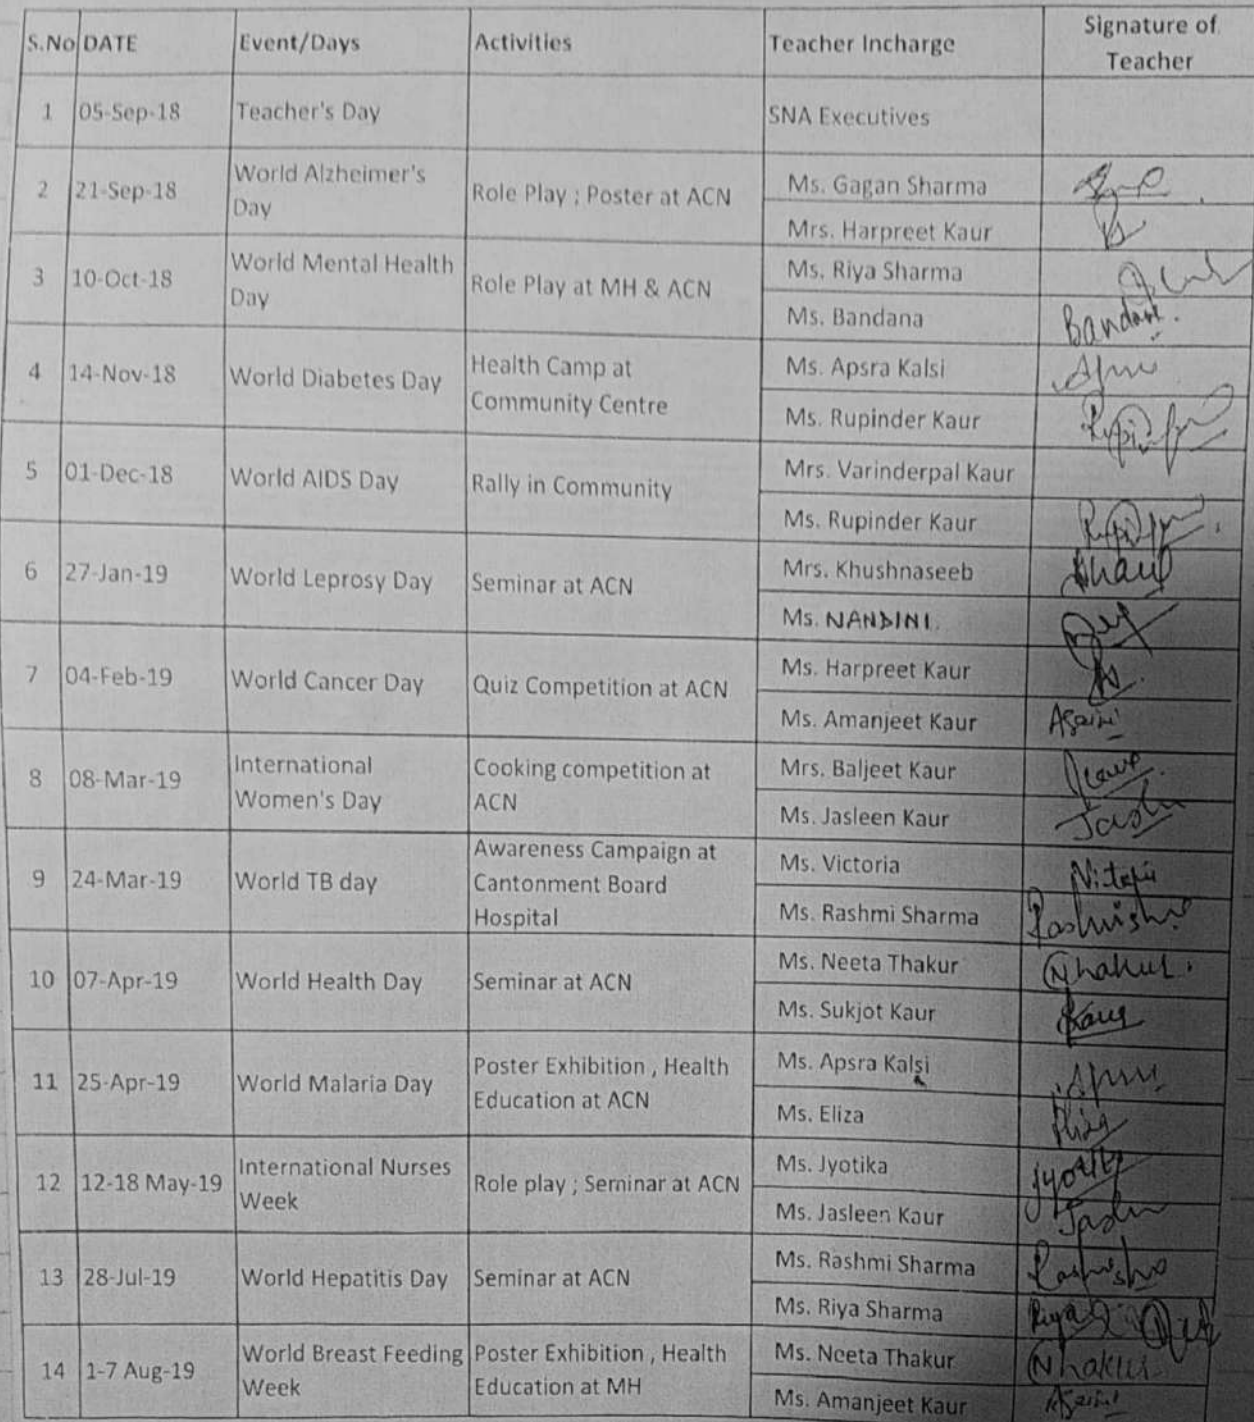 S.No DATE Event/Days Activities Teacher Incharge Signature of Teacher
1 05-Sep-18 Teacher's Day SNA Executives
2 21-Sep-18 World Alzheimer's Day Role Play ; Poster at ACN Ms. Gagan Sharma
Mrs. Harpreet Kaur
3 10-Oct-18 World Mental Health Day Role Play at MH & ACN Ms. Riya Sharma
Ms. Bandana Bandana.
4 14-Nov-18 World Diabetes Day Health Camp at Community Centre Ms. Apsra Kalsi
Ms. Rupinder Kaur
5 01-Dec-18 World AIDS Day Rally in Community Mrs. Varinderpal Kaur
Ms. Rupinder Kaur
6 27-Jan-19 World Leprosy Day Seminar at ACN Mrs. Khushnaseeb
Ms. NANDINI.
7 04-Feb-19 World Cancer Day Quiz Competition at ACN Ms. Harpreet Kaur
Ms. Amanjeet Kaur
8 08-Mar-19 International Women's Day Cooking competition at ACN Mrs. Baljeet Kaur
Ms. Jasleen Kaur
9 24-Mar-19 World TB day Awareness Campaign at Cantonment Board Hospital Ms. Victoria
Ms. Rashmi Sharma
10 07-Apr-19 World Health Day Seminar at ACN Ms. Neeta Thakur
Ms. Sukjot Kaur
11 25-Apr-19 World Malaria Day Poster Exhibition , Health Education at ACN Ms. Apsra Kalsi
Ms. Eliza
12 12-18 May-19 International Nurses Week Role play ; Seminar at ACN Ms. Jyotika
Ms. Jasleen Kaur
13 28-Jul-19 World Hepatitis Day Seminar at ACN Ms. Rashmi Sharma
Ms. Riya Sharma
14 1-7 Aug-19 World Breast Feeding Week Poster Exhibition , Health Education at MH Ms. Neeta Thakur
Ms. Amanjeet Kaur